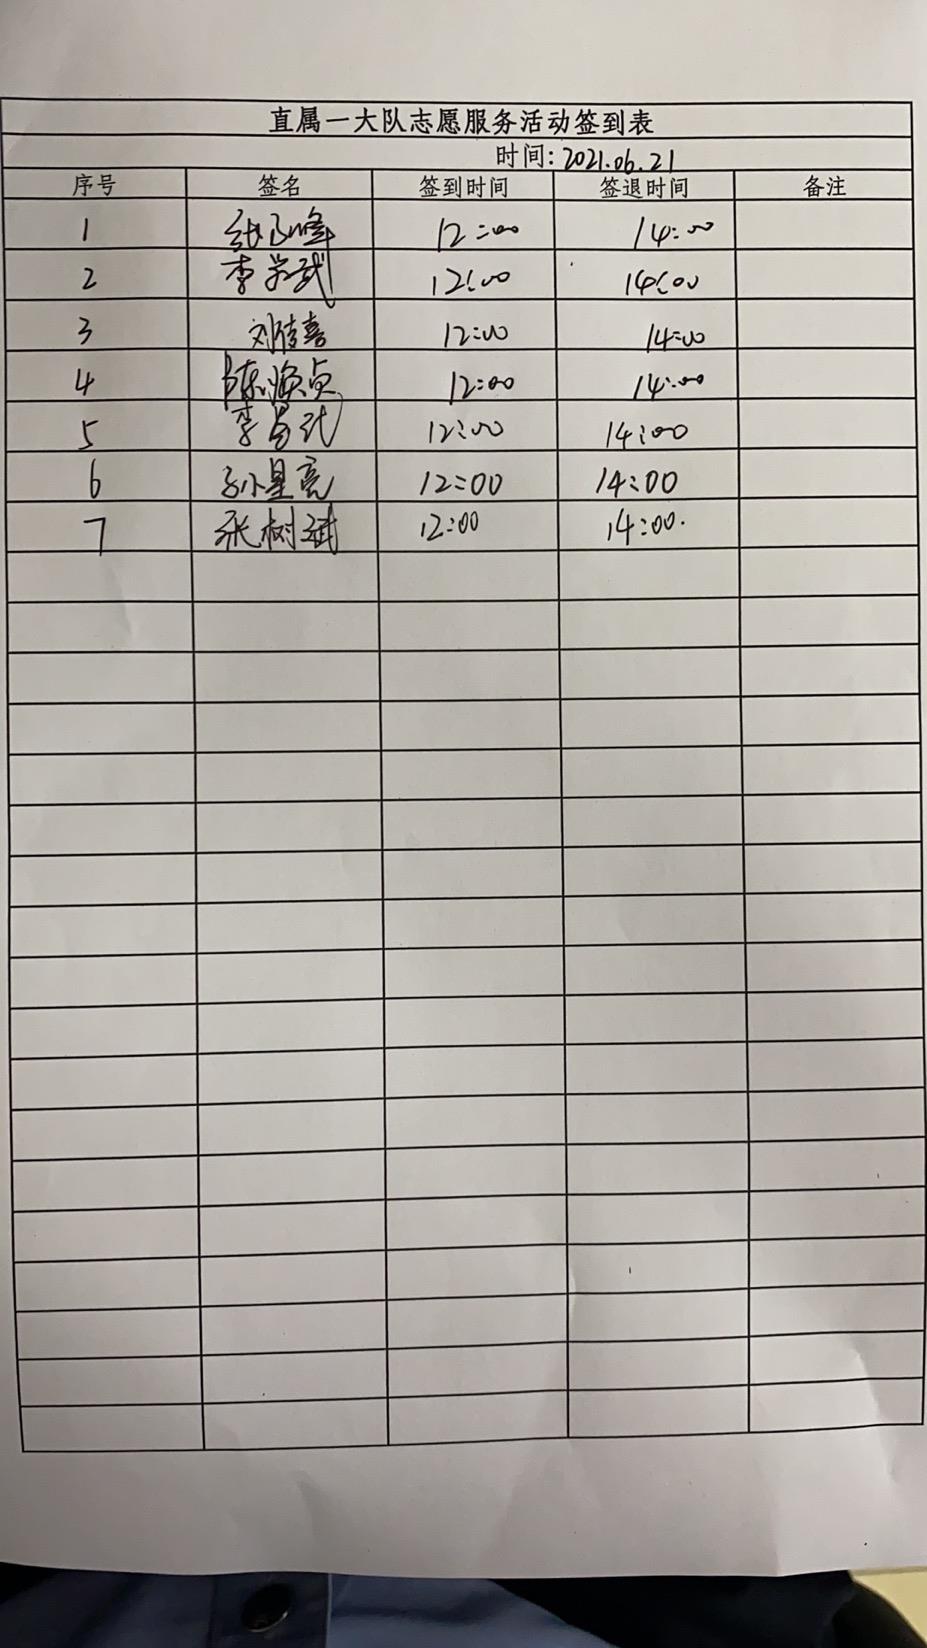 直属一大队志愿服务活动签到表
时间:2021.06.21
序号 签名 签到时间 签退时间 备注
1 12:00 14:00
2 李 武 12:00 14:00
3 刘倩喜 12:00 14:00
4 陈焕贞 12:00 14:00
5 李 12:00 14:00
6 孙星亮 12:00 14:00
7 张树斌 12:00 14:00.